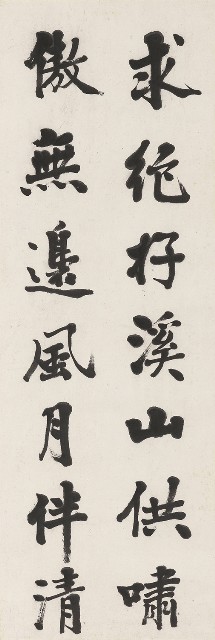 求絕好溪山供嘯
傲無邊風月伴清